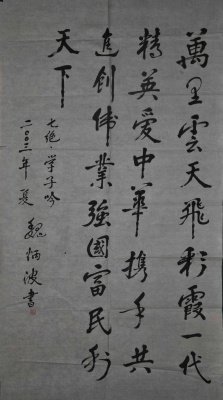 萬里雲天飛彩霞一代
精英爱中華携手共
進創伟業強國富民利
天下
七绝·学子吟
二〇〇三年夏 魏炳波書